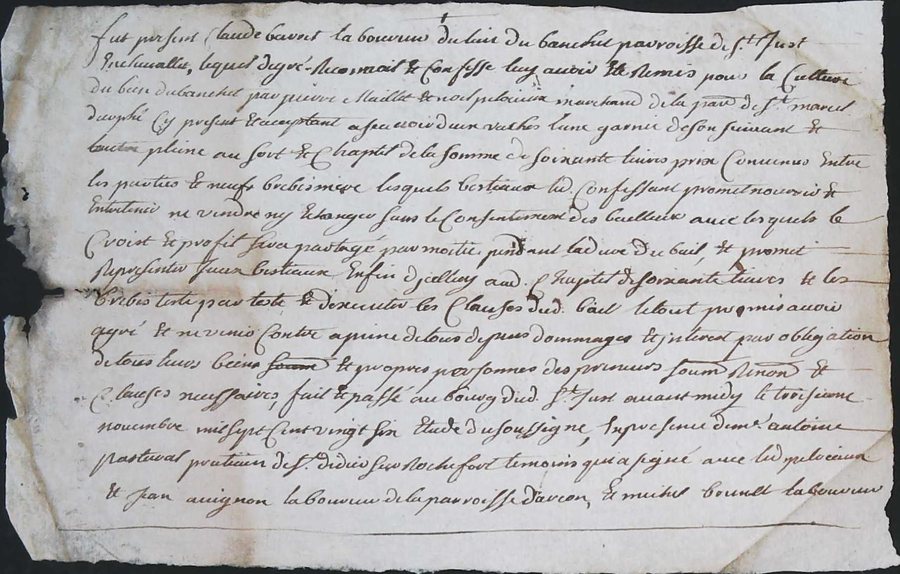 fut present Claude laboureur du lieu du banchet parroisse de St Just
En chevallet, lequel de gré Reconnoit & Confesse luy avoir été Remis pour la Culture
du bien du banchet par pierre Maillet & noel marchand de la parr. de St marcel
dauphé Cy present & acceptant a scavoir deux vaches lune garnie de son suivant &
lautre pleine au sort & Chaptel de la somme de soixante livres prix Convenus Entre
les parties & neuf brebis mere lesquels bestiaux led. Confessant promet nourrir &
Entretenir ne vendre ny Echanger sans le Consentement des bailleurs avec lesquels le
Croist & profit sera partagé par moitie pendant la duree du bail, & promet
Representer Iceux bestiaux Enfin dycelluy aud. Chaptel de soixante livres & les
brebis teste par teste & dexecuter les Clauses dud. bail le tout promis avoir
agré & ne venir Contre a peine de tous depens dommages & interest par obligation
de tous leurs biens & propres personnes des preneurs soum. Renon. &
Clauses necessaires, fait & passé au bourg dud. St Just avant midy le troisieme
novembre mil sept Cent vingt six Etude du soussigné, En presence de me. antoine
pasteural praticien de St. didier sur Rochefort temoins qui a signé avec led.
& Jean avignon laboureur de la parroisse darcon, & michel laboureur